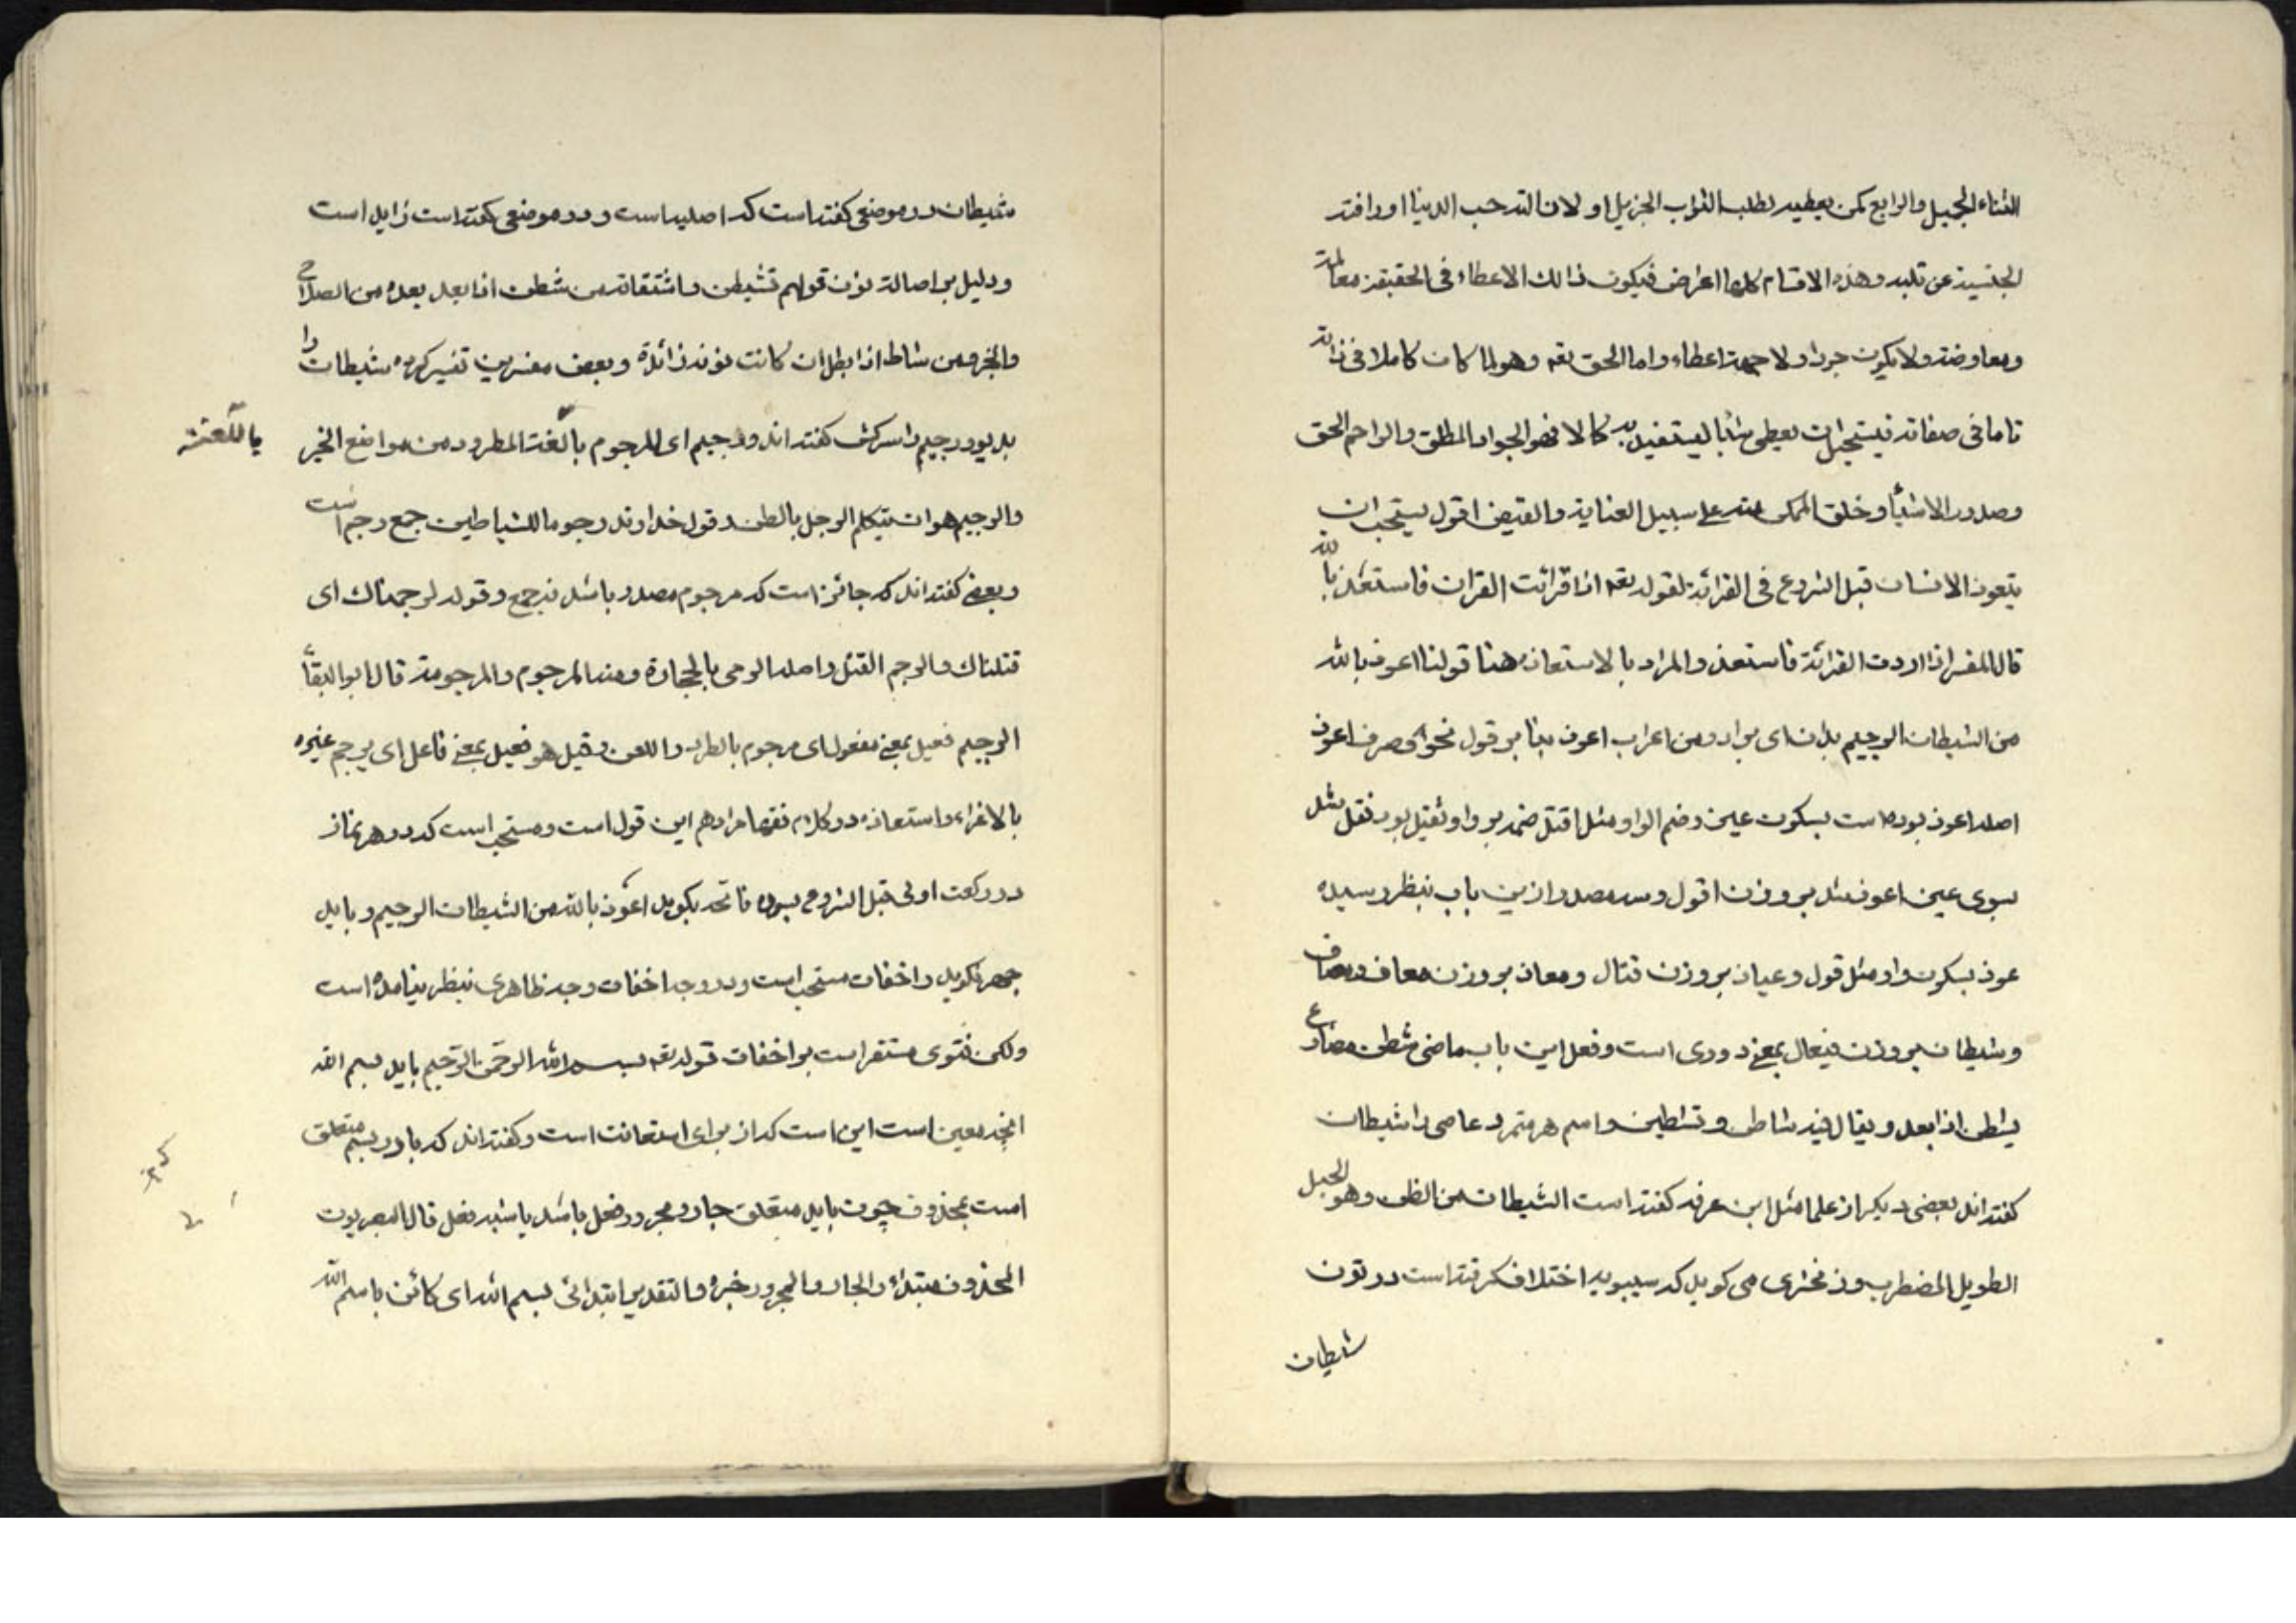 الثناء الجميل والرابع كمن يعطيه لطلب الثواب الجزيل او لان لته حب الدنيا او رافته
الجنسية عن قلبه وهذه الاقسام كلها اعراض فيكون ذالك الاعطاء فى الحقيقة معاملة
ومعاوضة ولا يكون جودا ولا اعطاء واما الحق تعه وهو لما كان كاملا فى ذاته
تاما فى صفاته فيستحيل ان يعطى شيئا ليستفيد به كمالا فهو الجواد المطلق والراحم الحق
وصدور الاشيأ وخلق الممكن منه على سبيل العناية والفيض اقول يستحب ان
يتعوذ الانسان قبل الشروع فى القرائة لقوله تعه اذا قرائت القران فاستعذ بالله
قال المفسر اذا اردت القرائة فاستعذ والمراد بالاستعاذه هنا قولنا اعوذ بالله
من الشيطان الرجيم بدان اى برادر من اعراب اعوذ بنا بر قول نحوى وصرف اعوذ
اصله اعوذ بوده است بسكون عين وضم الواو مثل اقتل ضمه بر واو ثقيل بود نقل شد
بسوى عين اعوذ شد بر وزن اقول وسه مصدر ازين باب بنظر رسيده
عوذ بسكون واو مثل قول وعياذ بر وزن قتال ومعاذ بر وزن معاف ومصاف
وشيطان بر وزن فيعال بمعنى دورى است وفعل اين باب ماضى شطن مضارع
يشطن اذا بعد ويقال فيه شاطن وتشطين واسم هر متمرد عاصى را شيطان
كفته اند بعضى ديكر از علما مثل ابن عرفه كفته است الشيطان من الظن وهو الحبل
الطويل المضطرب وزمخشرى مى كويد كه سيبويه اختلاف كرفته است در نون
شيطان
شيطان در موضعى كفته است كه اصليه است ودر موضعى كفته است زايد است
ودليل بر اصالت نون قولهم تشيطن واشتقاقه من شطن اذا بعد بعده من الصلاح
والخير ومن شاط اذا بطل ان كانت نونه زائدة وبعض مفسرين تفسير كرده شيطان را
بديو ورجيم را سركش كفته اند ورجيم اى المرجوم باللغة المطرود من مواضع الخير
يا اللعنة
والرجيم هو ان يتكلم الرجل بالظن در قول خداوند رجوما للشياطين جمع رجم است
وبعضى كفته اند كه جائز است كه مرجوم مصدر باشد نه جمع وقوله لرجمناك اى
قتلناك والرجم القتل واصله الرمى بالحجارة ومنه المرجوم والمرجومة قال ابو البقأ
الرجيم فعيل بمعنى مفعول اى مرجوم بالطرد واللعن وقيل هو فعيل بمعنى فاعل اى يرجم غيره
بالاغراء واستعاذه در كلام فقها مرادهم اين قول است ومستحب است كه در هر نماز
در ركعت اولى قبل الشروع بسوره فاتحه بكويد اعوذ بالله من الشيطان الرجيم وبايد
جهر نكويد واخفات مستحب است ودر وجه اخفات وجه ظاهرى بنظر نيامده است
ولكن فتوى مستقر است بر اخفات قوله تعه بسم الله الرحمن الرحيم بايد بسم الله
انچه معين است اين است كه از براى استعانت است وكفته اند كه با در بسم متعلق
است بمحذوف چون بايد متعلق جار ومجرور فعل باشد يا شبه فعل قال البصريون
المحذوف مبتداء والجار والمجرور خبره والتقدير ابتدائى بسم الله اى كائن باسم الله